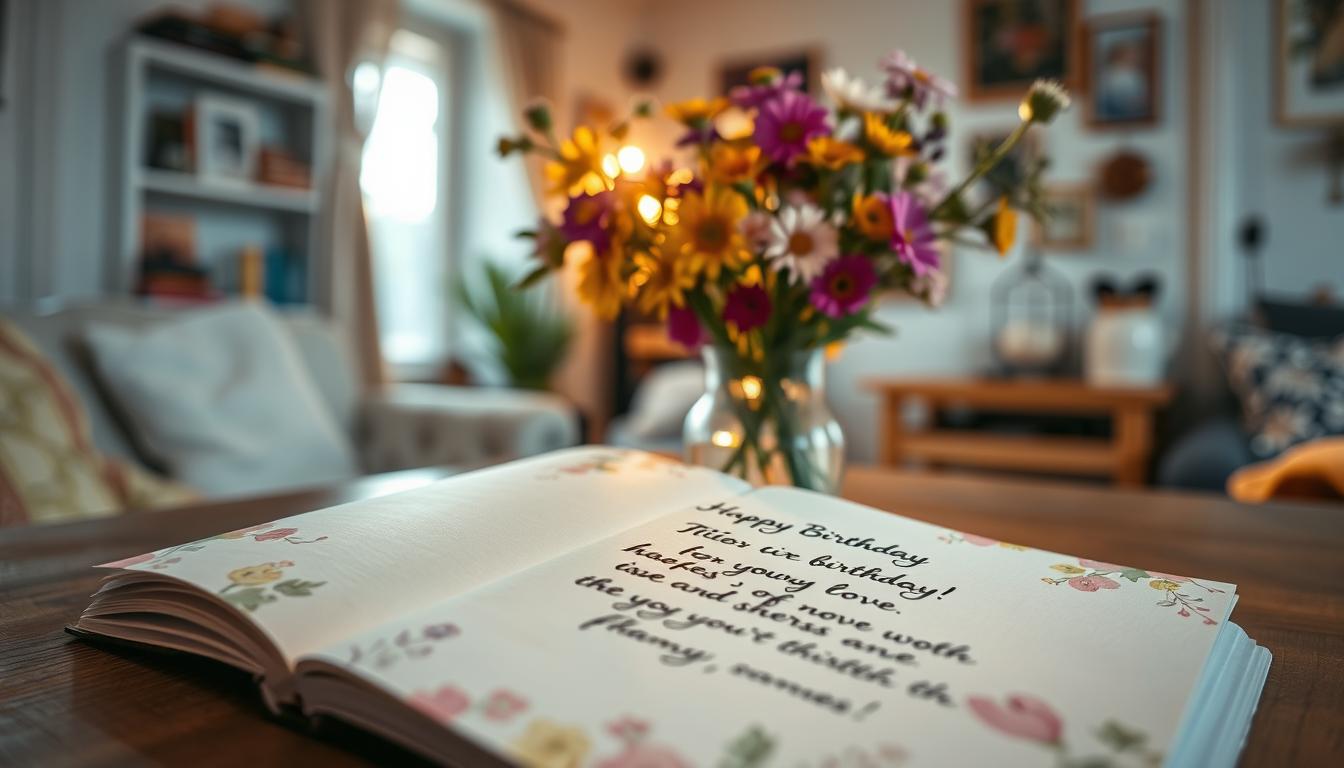 Happy Birthday
Tiiior ur birthday!
for youry love.
hacfes's of nove woth
isse and sherss ane
the yoy you't thistth th
fhamy, sames!